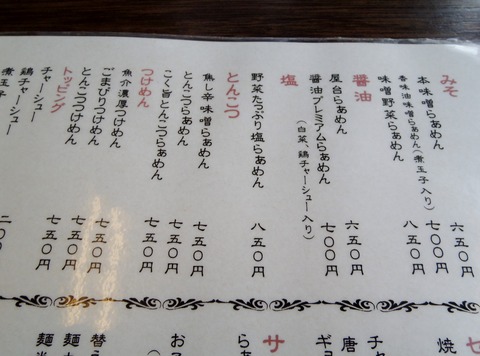 みそ
本味噌らあめん 六五〇円
香味油味噌らあめん(煮玉子入り) 七〇〇円
味噌野菜らあめん 八五〇円
醤油
屋台らあめん 六五〇円
醤油プレミアムらあめん 七〇〇円
(白菜、鶏チャーシュー入り)
塩
野菜たっぷり塩らあめん 八五〇円
とんこつ
焦し辛味噌らあめん 七五〇円
とんこつらあめん 七五〇円
こく旨とんこつらあめん 七五〇円
つけめん
魚介濃厚つけめん 七五〇円
ごまぴりつけめん 七五〇円
とんこつつけめん 七五〇円
トッピング
チャーシュー 二〇〇
鶏チャーシュー
煮玉子
セ
焼
チャ
唐
ギョ
サ
らあ
お
替え
麺
麺